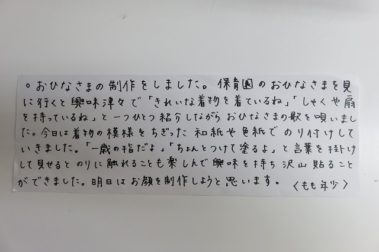 。おひなさまの制作をしました。保育園のおひなさまを見
に行くと興味津々で「きれいな着物を着ているね」「しゃくや扇
を持っているね」と一つひとつ紹介しながらおひなさまの歌を唄いまし
た。今日は着物の模様をちぎった和紙や色紙でのり付けして
いきました。「一歳の指だよ」「ちょんとつけて塗るよ」と言葉を掛け
して見せるとのりに触れることも楽しんで興味を持ち沢山貼ること
ができました。明日はお顔を制作しようと思います。〈もも年少〉